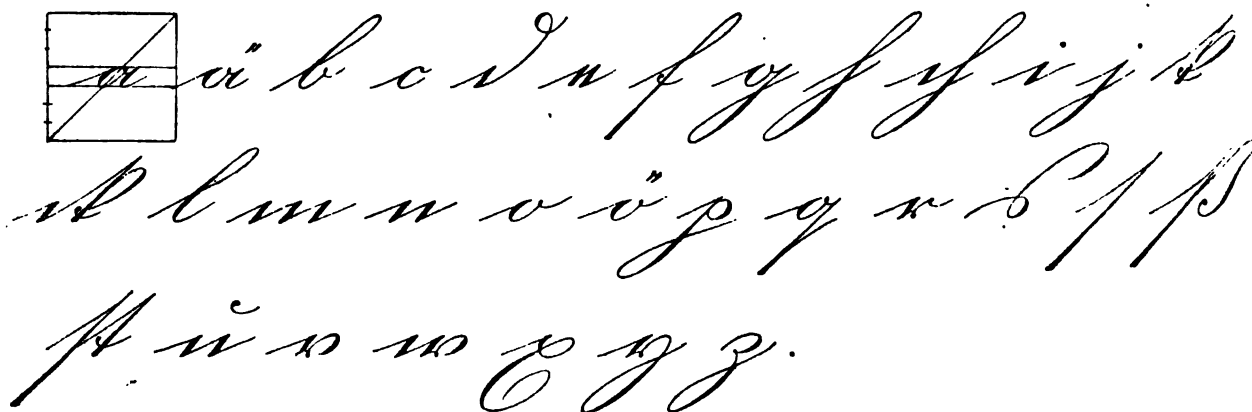 a ä b c d e f g h ch i j k
ck l m n o ö p q r s ſ ß
ſt u v w x y z.